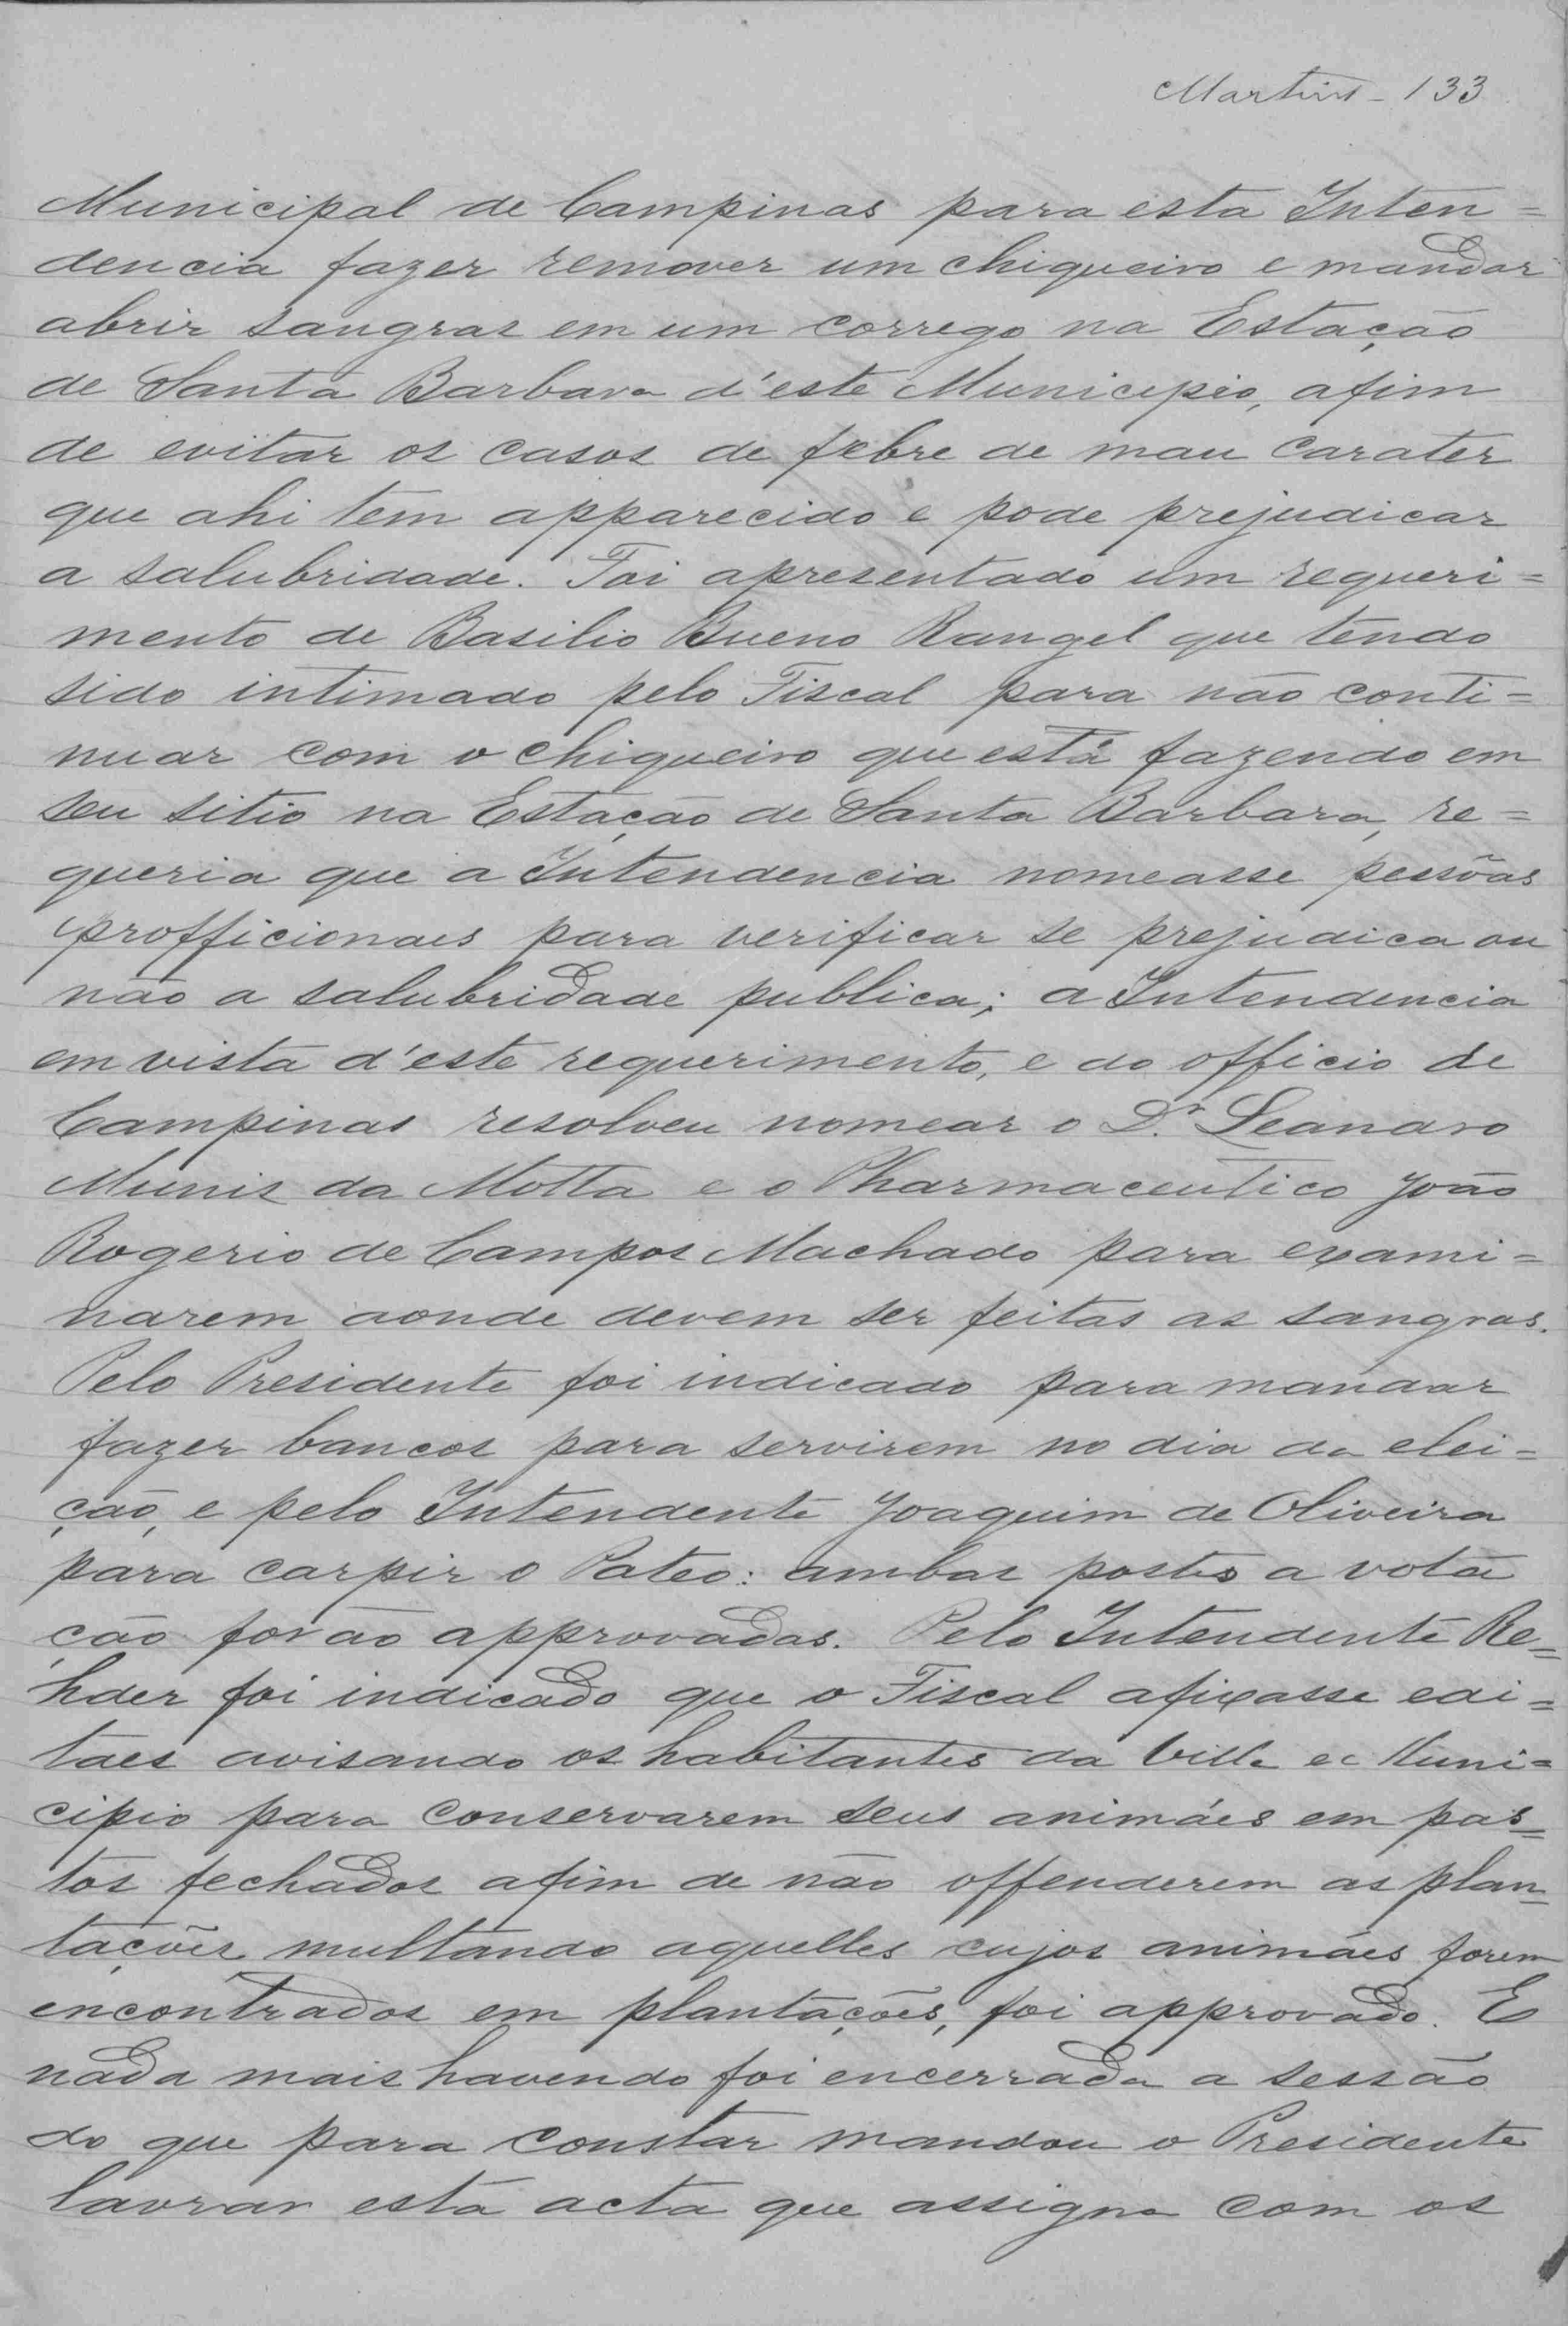 Martins - 133
Municipal de Campinas para esta Inten=
dencia fazer remover um chiqueiro e mandar
abrir sangras em um corrego na Estação
de Santa Barbara d'este Municipio, afim
de evitar os casos de febre de mau carater
que ahi tem apparecido e pode prejudicar
a salubridade. Foi apresentado um requeri=
mento de Basilio Bueno Rangel que tendo
sido intimado pelo Fiscal para não conti=
nuar com o chiqueiro que está fazendo em
seu sitio na Estação de Santa Barbara, re=
queria que a Intendencia nomeasse pessõas
profficionaes para verificar se prejudica ou
não a salubridade publica; a Intendencia
em vista d'este requerimento, e do officio de
Campinas resolveu nomear o Dr. Leandro
Munis da Motta e o Pharmaceutico João
Rogerio de Campos Machado para exami=
narem aonde devem ser feitas as sangras.
Pelo Presidente foi indicado para mandar
fazer bancos para servirem no dia da elei=
ção, e pelo Intendente Joaquim de Oliveira
para carpir o Pateo: ambas postas a vota
ção forão approvadas. Pelo Intendente Re=
hder foi indicado que o Fiscal afixasse edi=
taes avisando os habitantes da Villa ec Muni=
cipio para conservarem seus animáes em pas=
tos fechados afim de não offenderem as plan=
tações multando aquelles cujos animáes forem
encontrados em plantações, foi approvado. E
nada mais havendo foi encerrada a sessão
do que para constar mandou o Presidente
lavrar esta acta que assigna com os